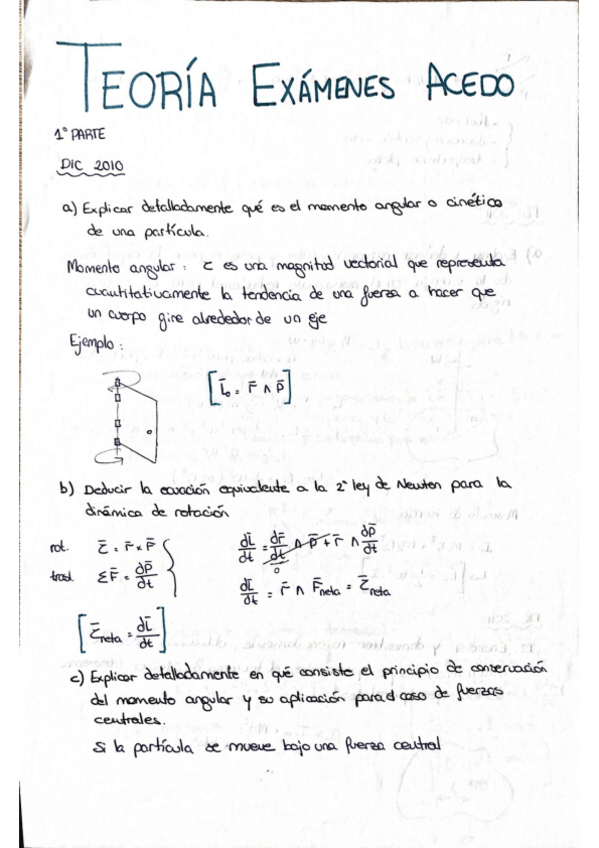 TEORÍA EXÁMENES ACEDO
1ª PARTE
DIC 2010
a) Explicar detalladamente qué es el momento angular o cinético
de una partícula.
Momento angular : τ es una magnitud vectorial que representa
cuantitativamente la tendencia de una fuerza a hacer que
un cuerpo gire alrededor de un eje
Ejemplo :
[L̄₀ = r̄ ∧ p̄]
b) Deducir la ecuación equivalente a la 2ª ley de Newton para la
dinámica de rotación
rot. τ̄ = r̄ × P̄
trasl. ΣF̄ = dP̄/dt
dL̄/dt = dr̄/dt ∧ p̄ + r̄ ∧ dp̄/dt
0
dL̄/dt = r̄ ∧ F̄neta = τ̄neta
[τ̄neta = dL̄/dt]
c) Explicar detalladamente en qué consiste el principio de conservación
del momento angular y su aplicación para el caso de fuerzas
centrales.
Si la partícula se mueve bajo una fuerza central